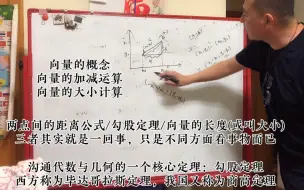 向量的概念
向量的加减运算
向量的大小计算
两点间的距离公式/勾股定理/向量的长度(或叫大小)
三者其实就是一回事,只是不同方面看事物而已
沟通代数与几何的一个核心定理:勾股定理
西方称为毕达哥拉斯定理,我国又称为商高定理